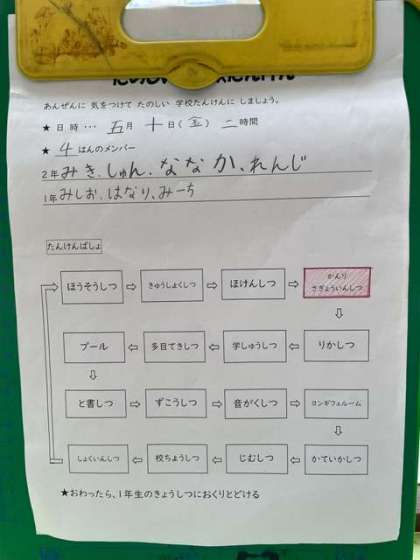 あんぜんに 気をつけて たのしい 学校たんけんに しましょう。
★ 日 時 … 五月 十日(金) 二時間
★ 4はんのメンバー
2年 みき、しゅん、ななか、れんじ
1年 みしお、はなり、みーち
たんけんばしょ
ほうそうしつ ⇨ きゅうしょくしつ ⇨ ほけんしつ ⇨ かんりさぎょういんしつ
⇩
プール ⇦ 多目てきしつ ⇦ 学しゅうしつ ⇦ りかしつ
⇩
と書しつ ⇨ ずこうしつ ⇨ 音がくしつ ⇨ ロンギフェルーム
⇩
しょくいんしつ ⇦ 校ちょうしつ ⇦ じむしつ ⇦ かていかしつ
★おわったら、1年生のきょうしつにおくりとどける